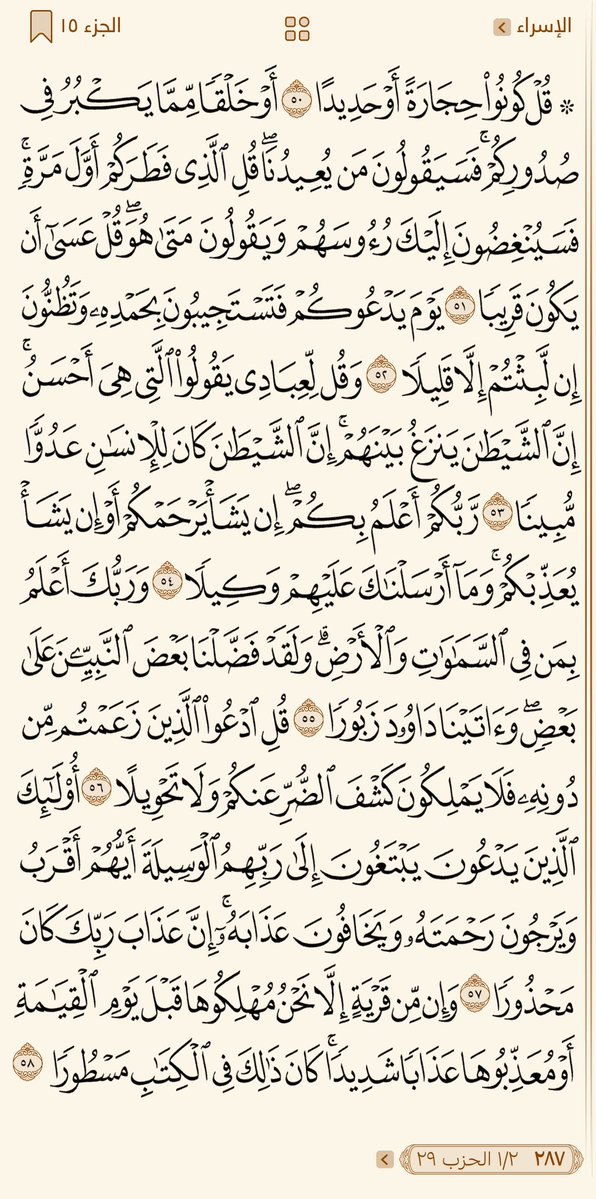 الإسراء
الجزء ١٥
۞ قُلۡ كُونُواْ حِجَارَةً أَوۡ حَدِيدًا ٥٠ أَوۡ خَلۡقٗا مِّمَّا يَكۡبُرُ فِي
صُدُورِكُمۡۚ فَسَيَقُولُونَ مَن يُعِيدُنَاۖ قُلِ ٱلَّذِي فَطَرَكُمۡ أَوَّلَ مَرَّةٖۚ
فَسَيُنۡغِضُونَ إِلَيۡكَ رُءُوسَهُمۡ وَيَقُولُونَ مَتَىٰ هُوَۖ قُلۡ عَسَىٰٓ أَن
يَكُونَ قَرِيبٗا ٥١ يَوۡمَ يَدۡعُوكُمۡ فَتَسۡتَجِيبُونَ بِحَمۡدِهِۦ وَتَظُنُّونَ
إِن لَّبِثۡتُمۡ إِلَّا قَلِيلٗا ٥٢ وَقُل لِّعِبَادِي يَقُولُواْ ٱلَّتِي هِيَ أَحۡسَنُۚ
إِنَّ ٱلشَّيۡطَٰنَ يَنزَغُ بَيۡنَهُمۡۚ إِنَّ ٱلشَّيۡطَٰنَ كَانَ لِلۡإِنسَٰنِ عَدُوّٗا
مُّبِينٗا ٥٣ رَّبُّكُمۡ أَعۡلَمُ بِكُمۡۖ إِن يَشَأۡ يَرۡحَمۡكُمۡ أَوۡ إِن يَشَأۡ
يُعَذِّبۡكُمۡۚ وَمَآ أَرۡسَلۡنَٰكَ عَلَيۡهِمۡ وَكِيلٗا ٥٤ وَرَبُّكَ أَعۡلَمُ
بِمَن فِي ٱلسَّمَٰوَٰتِ وَٱلۡأَرۡضِۗ وَلَقَدۡ فَضَّلۡنَا بَعۡضَ ٱلنَّبِيِّـۧنَ عَلَىٰ
بَعۡضٖۖ وَءَاتَيۡنَا دَاوُۥدَ زَبُورٗا ٥٥ قُلِ ٱدۡعُواْ ٱلَّذِينَ زَعَمۡتُم مِّن
دُونِهِۦ فَلَا يَمۡلِكُونَ كَشۡفَ ٱلضُّرِّ عَنكُمۡ وَلَا تَحۡوِيلًا ٥٦ أُوْلَٰٓئِكَ
ٱلَّذِينَ يَدۡعُونَ يَبۡتَغُونَ إِلَىٰ رَبِّهِمُ ٱلۡوَسِيلَةَ أَيُّهُمۡ أَقۡرَبُ
وَيَرۡجُونَ رَحۡمَتَهُۥ وَيَخَافُونَ عَذَابَهُۥٓۚ إِنَّ عَذَابَ رَبِّكَ كَانَ
مَحۡذُورٗا ٥٧ وَإِن مِّن قَرۡيَةٍ إِلَّا نَحۡنُ مُهۡلِكُوهَا قَبۡلَ يَوۡمِ ٱلۡقِيَٰمَةِ
أَوۡ مُعَذِّبُوهَا عَذَابٗا شَدِيدٗاۚ كَانَ ذَٰلِكَ فِي ٱلۡكِتَٰبِ مَسۡطُورٗا ٥٨
٢٨٧ ١/٢ الحزب ٢٩